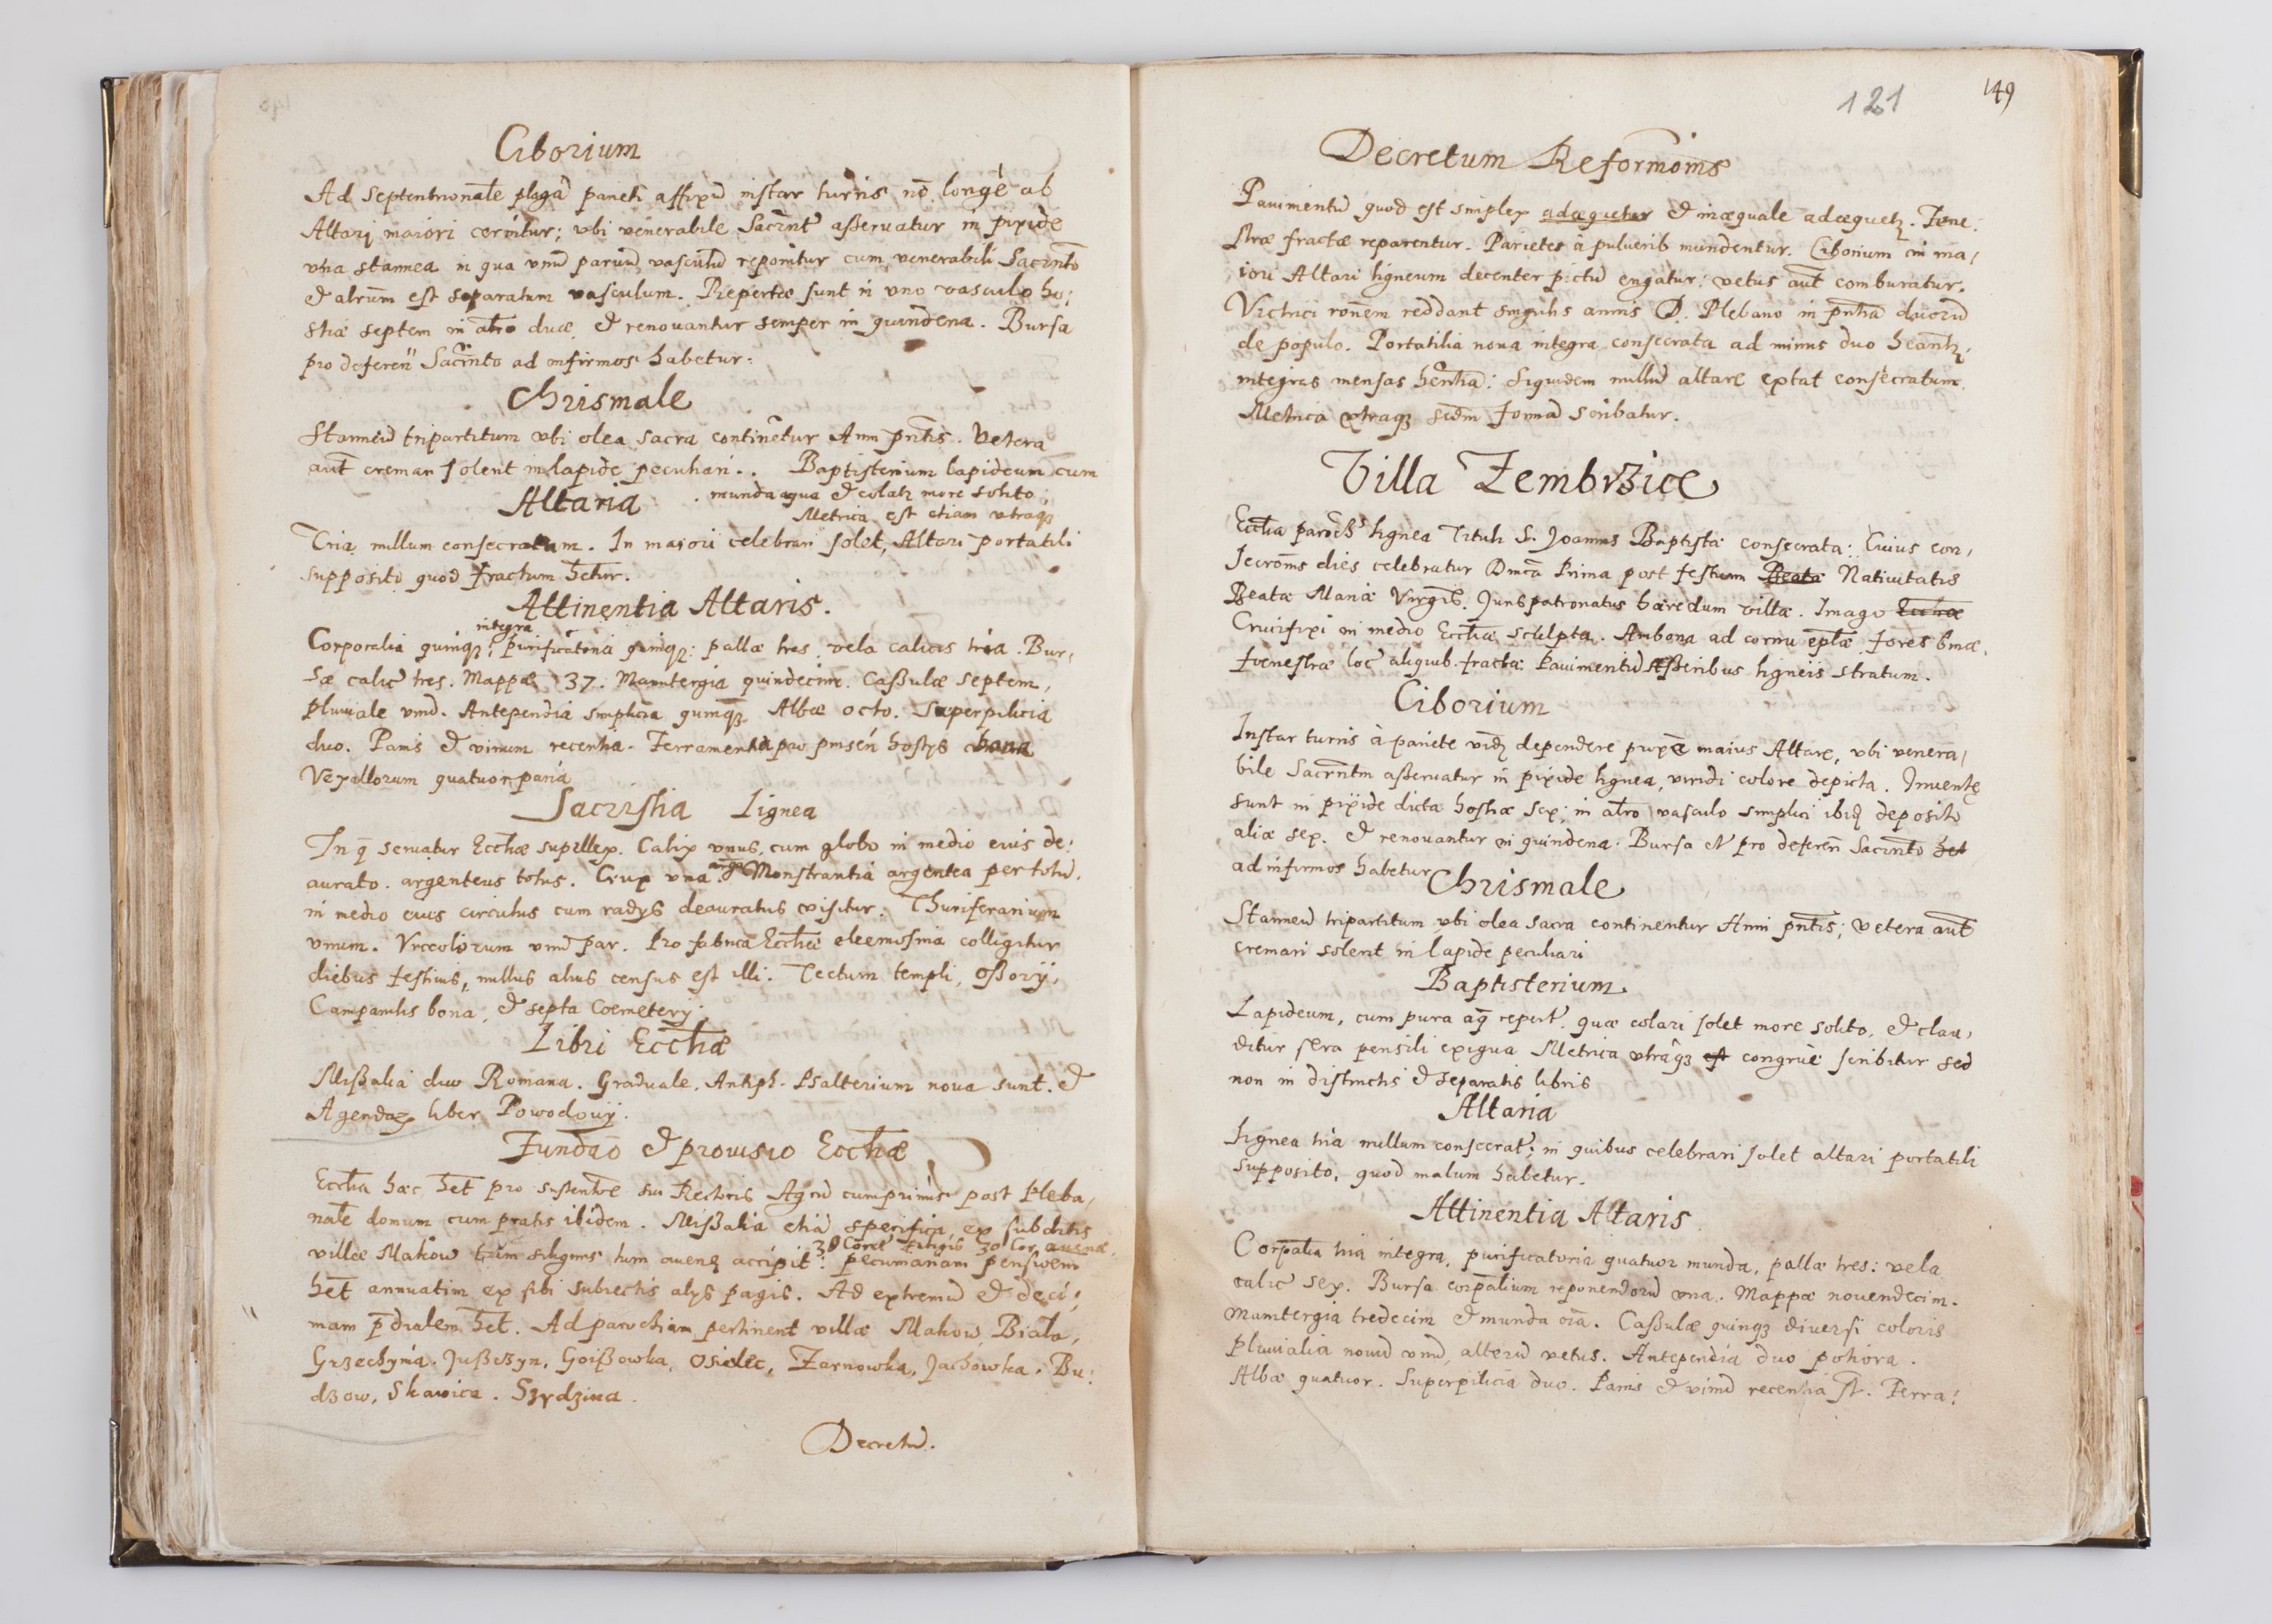 Ciborium
Ad Septentrionale plagã parieti affixũ instar turris nõ longè ab
Altari maiori cernitur; vbi venerabile Sacrnt̃ aßeruatur in pixide
vna stannea in qua vnũ paruũ vasculũ reponitur cum venerabili Sacrnto
& alrũm est separatum vasculum. Repertæ sunt in vno vasculo ho:
stiæ septem in altro duæ & renouantur semper in quindena. Bursa
pro deferen̈ Sacrnto ad infirmos habetur:
Chrismale
Stanneũ tripartitum vbi olea sacra continẽtur Anni pñtis. Vetera
aut̃ cremari solent in lapide peculiari.. Baptisterium lapideum cum
munda aqua & colatz more solito
Altaria
Metrica est etiam vtraqз
Tria nullum consecratum. In maiori celebrari solet, Altari portatili
supposito quod fractum hetur.
Attinentia Altaris.
integra
Corporalia quinqз, purificatoria quinqз: pallæ tres vela calicis tria. Bur,
sæ calic̃ tres. Mappæ 37. Manutergia quindecim. Caßulæ septem,
pluuiale vnũ. Antependia simplicia quinqз Albæ octo. Superpilicia
duo. Panis & vinum recentia. Ferramenta pro pinsen̈ hostys bona
Vexillorum quatuor paria
Sacristia Lignea
In q̃ seruatur Ecctiæ supillex. Calix vnus, cum globo in medio eius de:
aurato. argenteus totus. Crux vna arga Monstrantia argentea per totũ.
in medio eius circulus cum radys deauratus visitur. Thuriferarium
vnum. Vrceolorum vnũ par. Pro fabrica Ecctiæ eleemosina colligitur
diebus festiuis, nullus alius census est illi. Tectum templi, oßorÿ,
Campanilis bona, & septa Coemeterÿ
Libri Ecctiæ
Mißalia duo Romana. Graduale, Antiph. Psalterium noua sunt. &
Agendaз liber Powodowÿ.
Fundao & prouisio Ecctiæ
Ecctia hæc het pro sustentõe sui Rectoris Agrũ cumprimis post Pleba,
nale domum cum pratis ibidem. Mißalia etiã specifica, ex subditis
30 Coret siliginis 30 Cor auenæ.
villæ Makow tum siliginis tum auenę accipit: pecuniariam pensioem
het annuatim ex sibi subiectis alys pagis. Ad extremũ & deci:
mam p̃dialem het. Ad parochiam pertinent villæ Makow Biała,
Grzechynia. Jußczyn, Goißowka, Osielec, Zarnowka, Jachowka. Bu:
dzow, Skawica. Szydzina.
Decretũ.
121
149
Decretum Reformõnis
Pauimentũ quod est simplex adæquetur & inæquale adæquetz. Fene:
stræ fractæ reparentur. Parietes à puluerib mundentur. Ciborium in ma,
iori Altari ligneum decenter pictũ erigatur: vetus aut̃ comburatur.
Victrici ronem reddant singulis annis D. Plebano in pñtia duorũ
de populo. Portatilia noua integra consecrata ad minus duo heantz,
integras mensas hentia: Siquidem nullũ altare extat consecratum.
Metrica vtraqз scdm formã scribatur.
Villa Zembrzice
Ecctia paroch̃s lignea Tituli S. Joannis Baptistæ consecrata: Cuius con,
secrõnis dies celebratur Dnicã Prima post festum Beata Natiuitatis
Beatæ Mariæ Virgis. Juris patronatus hæredum villæ. Imago Ecctiæ
Crucifixi in medio Ecctiæ sculpta. Ambona ad cornu eplæ fores bonæ.
fuenestræ loc̃ aliquib. fractæ Pauimentũ aßeribus ligneis stratum.
Ciborium
Instar turris à pariete vidz dependere prope maius Altare, vbi venera,
bile Sacrntm aßeruatur in pixide lignea, viridi colore depicta. Inuentę
sunt in pixide dicta hostiæ sex; in altro vasculo simplici ibid deposito
aliæ sex. & renouantur in quindena. Bursa et pro deferen̈ Sacrnto het
ad infirmos habetur
Chrismale
Stanneũ tripartitum vbi olea sacra continentur Anni pñtis; vetera aut̃
cremari solent in lapide peculiari
Baptisterium.
Lapideum, cum pura aq̃ reperit. quæ colari solet more solito. & clau,
ditur sera pensili exigua Metrica vtraqз est congruè scribitur sed
non in distinctis & separatis libris
Altaria
Lignea tria nullum consecrat̃; in quibus celebrari solet altari portatili
supposito, quod malum habetur.
Attinentia Altaris
Corpalia tria integra, purificatoria quatuor munda, pallæ tres: vela
calic̃ sex. Bursa corpalium reponendorũ vna. Mappæ nouendecim.
Manutergia tredecim & munda oia. Caßulæ quinqз diuersi coloris
Pluuialia nouũ vnũ, alterũ vetus. Antependia duo potiora.
Albæ quatuor. Superpilicia duo. Panis & vinũ recentia st. Ferra: